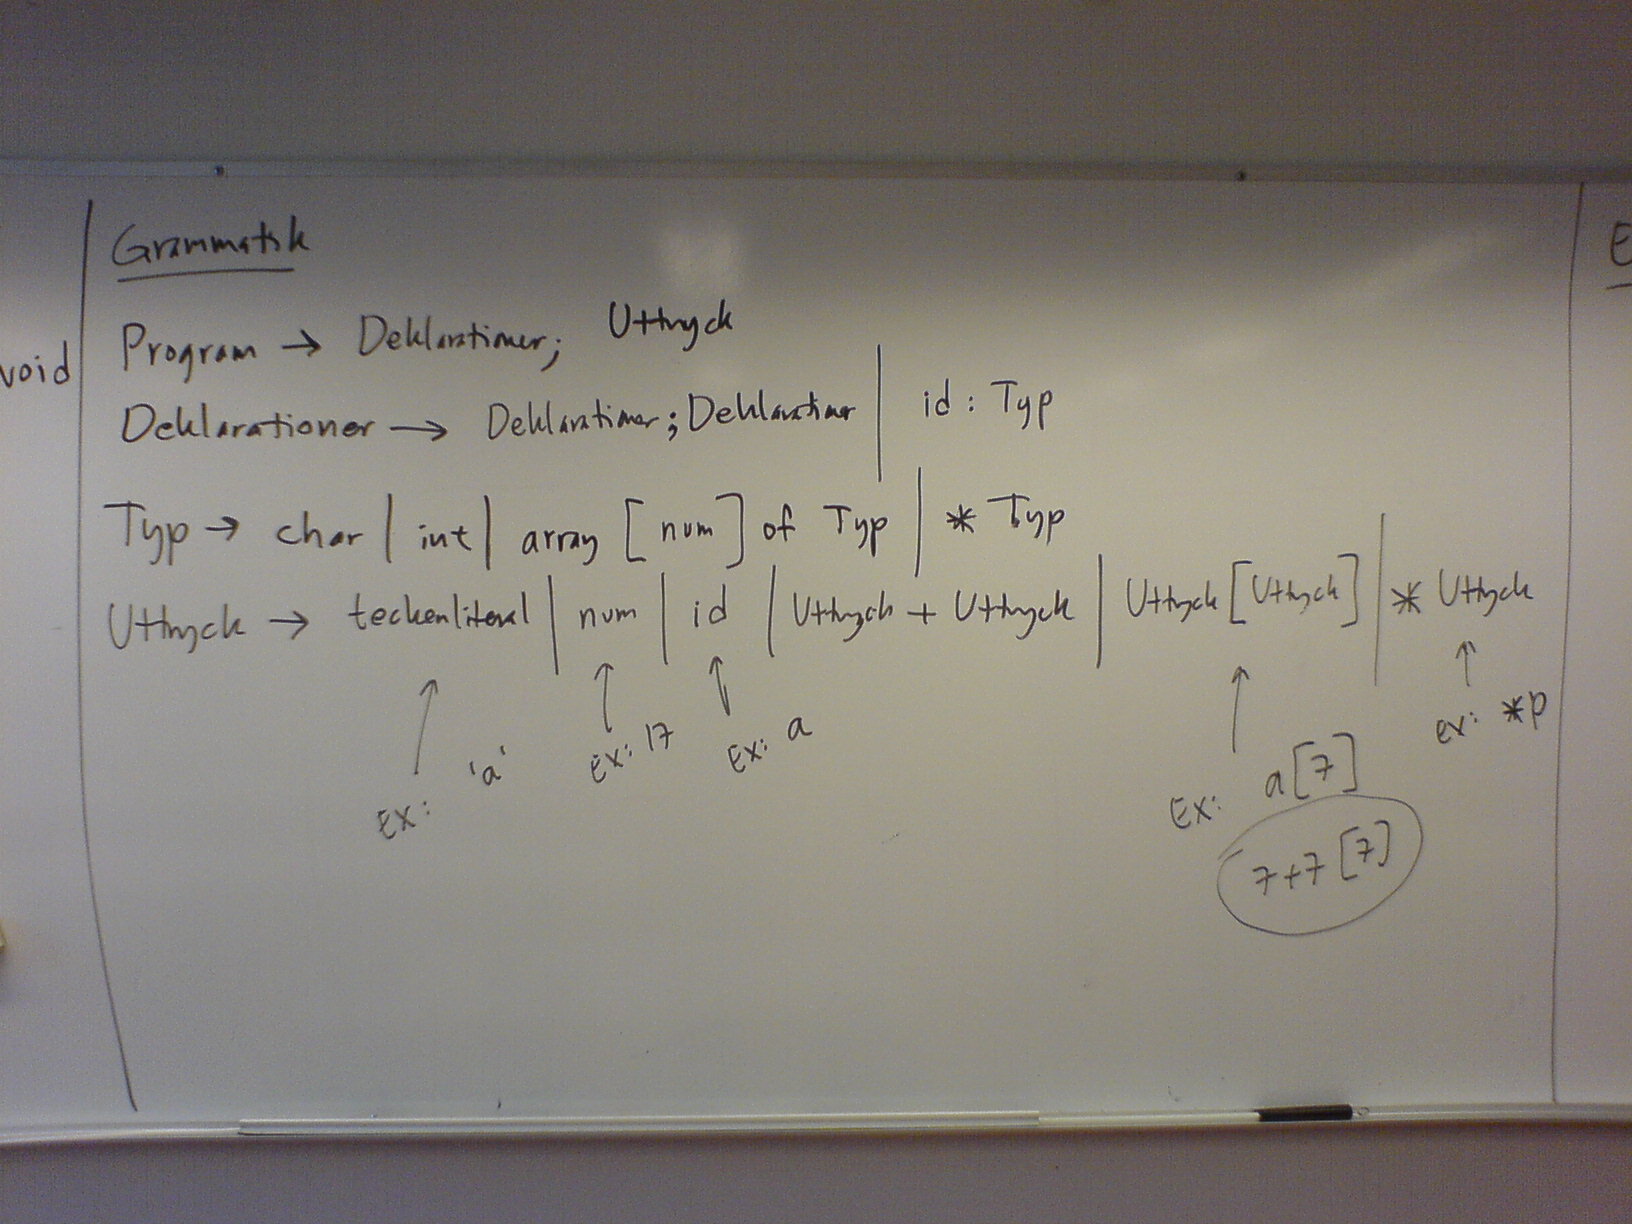 Grammatik
void
Program → Deklarationer; Uttryck
Deklarationer → Deklarationer; Deklarationer | id : Typ
Typ → char | int | array [num] of Typ | * Typ
Uttryck → teckenliteral | num | id | Uttryck + Uttryck | Uttryck [Uttryck] | * Uttryck
Ex: 'a'
Ex: 17
Ex: a
Ex: a[7]
ex: *p
7+7[7]
E